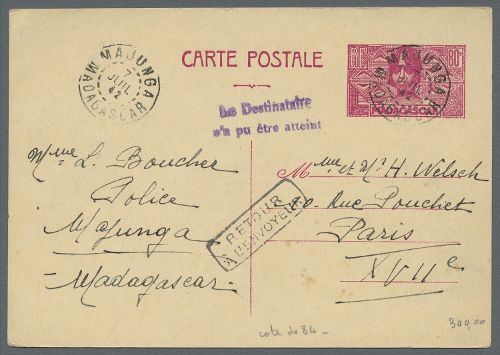 CARTE POSTALE
MAJUNGA
7
JUIL
42
MADAGASCAR
RF
80c
MAJUNGA
MADAGASCAR
Le Destinataire
n'a pu être atteint
Mme L. Boucher
Police
Majunga
Madagascar
Mme et Mr H. Welsch
Rue Pouchet
Paris
XVIIe
RETOUR
A L'ENVOYEUR
cote de 84 -
300,00